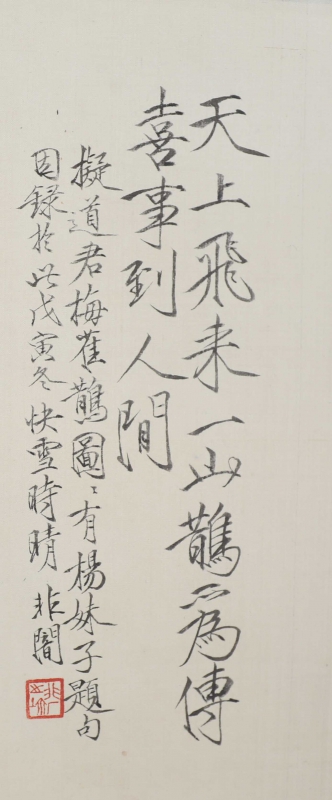 天上飛来一山鵲為傳
喜事到人間
擬道君梅雀鵲圖〻有楊妹子題句
因録於此戊寅冬快雪時晴 非闇